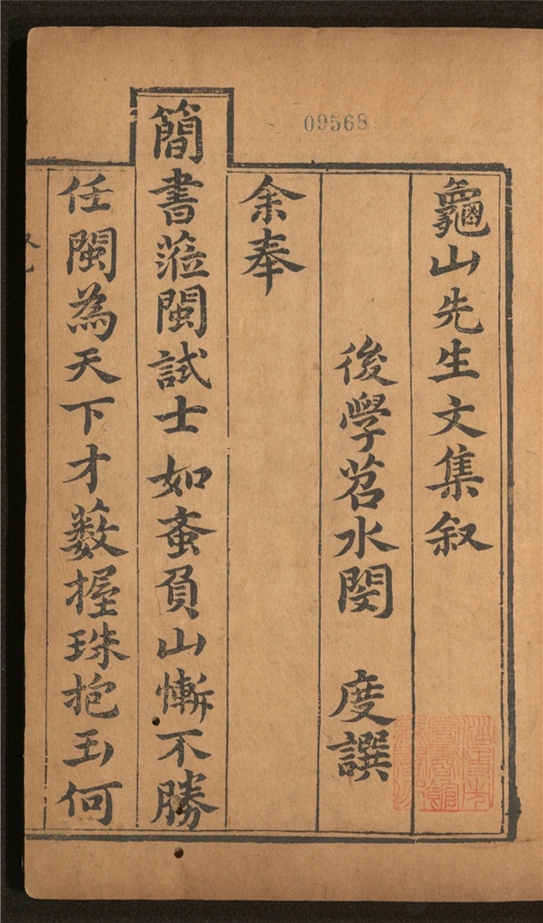 09568
龜山先生文集叙
後學苕水閔　度譔
余奉
簡書蒞閩試士如蚉負山慚不勝
任閩為天下才藪握珠抱玉何